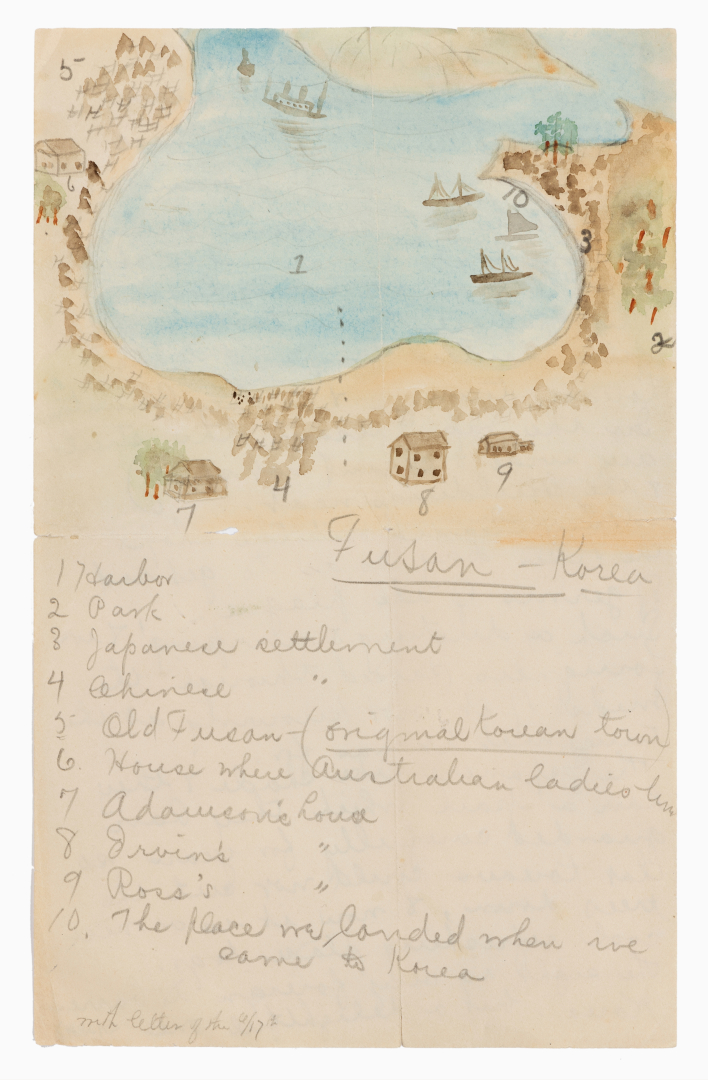 5
6
1
10
3
2
7
4
8
9
Fusan - Korea
1 Harbor
2 Park
3 Japanese settlement
4 Chinese "
5 Old Fusan - (original Korean town)
6. House where Australian ladies live
7 Adamson's house
8 Irvin's "
9 Ross's "
10. The place we landed when we
came to Korea
with letter of the 4/17th